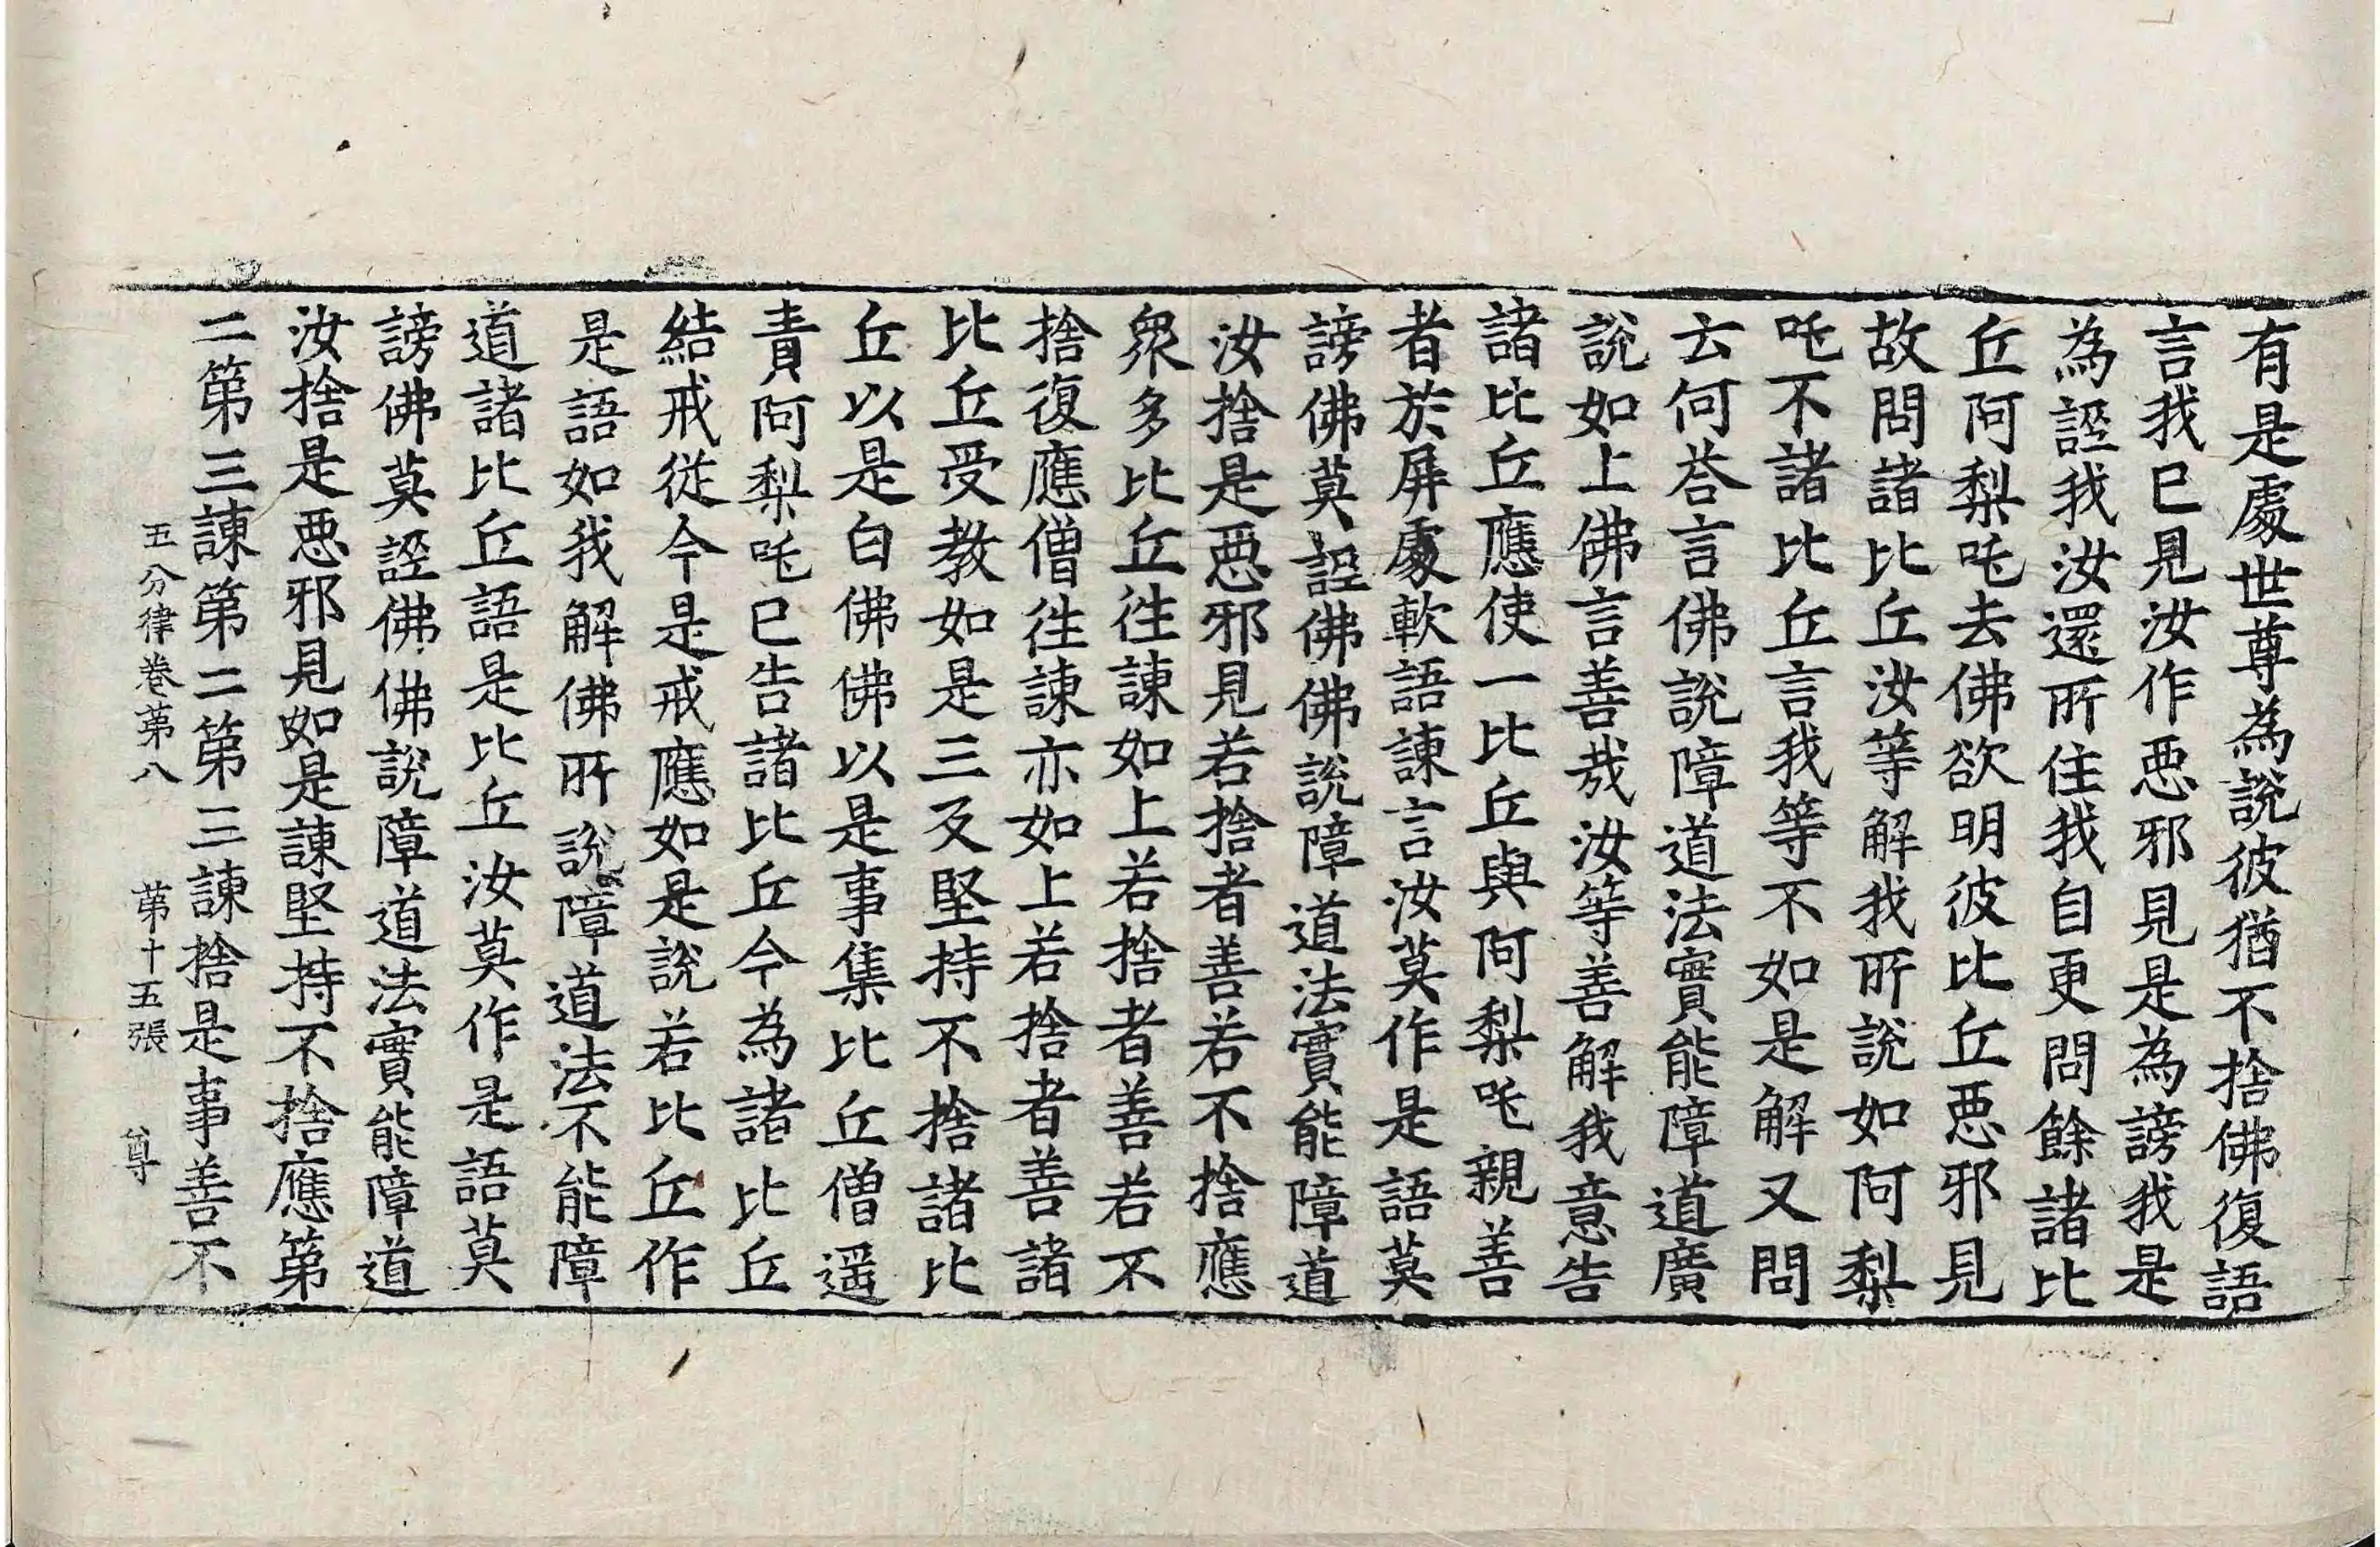 有是處世尊為說彼猶不捨佛復語
言我已見汝作惡邪見是為謗我是
為誣我汝還所住我自更問餘諸比
丘阿梨吒去佛欲明彼比丘惡邪見
故問諸比丘汝等解我所說如阿梨
吒不諸比丘言我等不如是解又問
云何荅言佛說障道法實能障道廣
說如上佛言善哉汝等善解我意告
諸比丘應使一比丘與阿梨吒親善
者於屏處軟語諫言汝莫作是語莫
謗佛莫誣佛佛說障道法實能障道
汝捨是惡邪見若捨者善若不捨應
眾多比丘往諫如上若捨者善若不
捨復應僧往諫亦如上若捨者善諸
比丘受教如是三反堅持不捨諸比
丘以是白佛佛以是事集比丘僧遥
責阿梨吒已告諸比丘今為諸比丘
結戒從今是戒應如是說若比丘作
是語如我解佛所說障道法不能障
道諸比丘語是比丘汝莫作是語莫
謗佛莫誣佛佛說障道法實能障道
汝捨是惡邪見如是諫堅持不捨應第
二第三諫第二第三諫捨是事善不
五分律卷第八　第十五張　尊